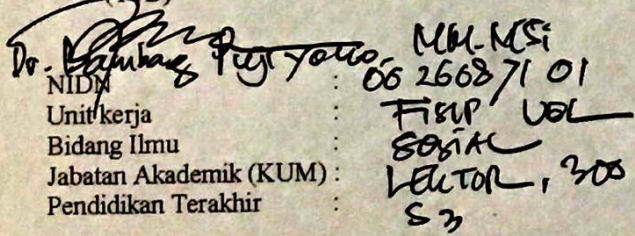 Dr. Bambang Pujiyono, MM-MSi
NIDN : 06 2668 71 01
Unit kerja : FISIP UBL
Bidang Ilmu : SOSIAL
Jabatan Akademik (KUM) : LEKTOR, 300
Pendidikan Terakhir : S3